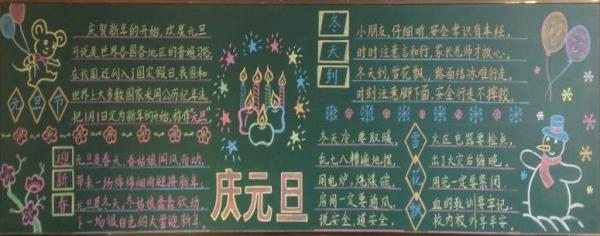 庆贺新年的开始，欢度元旦
可说是世界各国各地区的普遍习俗，
在我国还列入了国定假日，我国和
世界上大多数国家采用公历纪年法，
把1月1日定为新年的开始，称作元旦
元旦节
迎新春
元旦是春天，春姑娘闻风而动，
带来一场绵绵细雨迎接新年
元旦是冬天，冬姑娘蠢蠢欲动
下一场银白色的大雪迎新年。
庆元旦
冬天到
小朋友，仔细听，安全常识自本经，
时时注意言和行，家长老师才放心。
冬天到，雪花飘，路面结冰难行走，
时刻注意脚下面，安全行走不摔跤。
冬天冷，要取暖，
乱七八糟遍地摆，
用电炉，烧煤碳，
房间一定要通风，
说安全，道安全，
雪花飘
火区电器要检点，
出了火灾后悔晚，
用完一定要紧闭，
血的教训要牢记，
校内校外享平安。